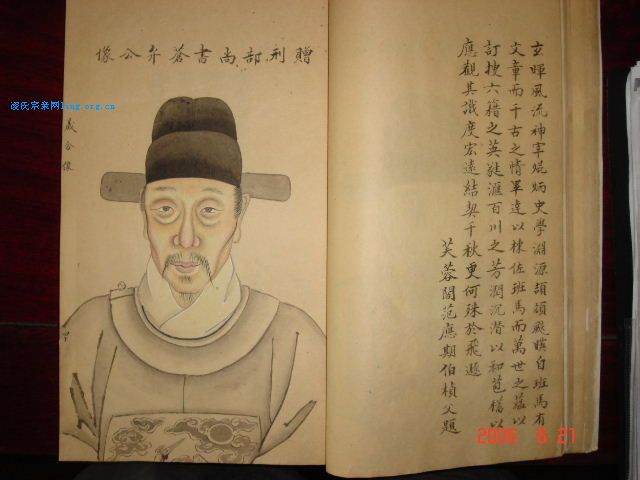 贈刑部尚書蒼弁公像
凌氏宗亲网ling.org.cn
像
玄暉風流神宰焜炳史學淵源頡頏自班馬有
文章而千古之情畢達以棟佐班馬而萬世之蘊以
訂搜六籍之英蕤滙百川之芳潤沉潛以和苞以
應觀其識度宏遠結契千秋更何殊於飛遯
芙蓉閣范應期伯楨父題
2006 6 21